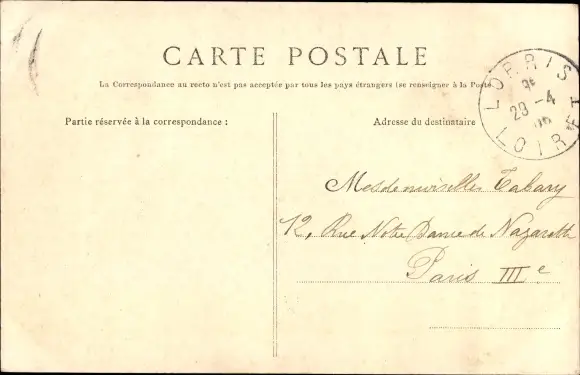 CARTE POSTALE
La Correspondance au recto n'est pas acceptée par tous les pays étrangers (se renseigner à la Poste
Partie réservée à la correspondance :
Adresse du destinataire
LORRIS
28 -4
LOIRET
Mesdemoiselles Tabary
12, Rue Notre Dame de Nazareth
Paris III e